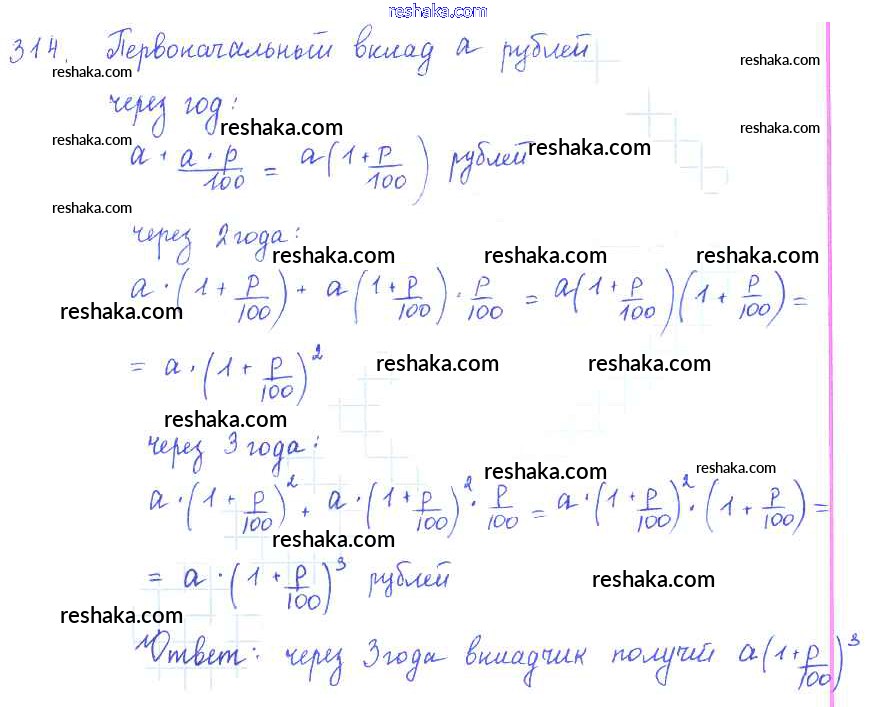 reshaka.com
314. Первоначальный вклад a рублей
reshaka.com reshaka.com
через год:
reshaka.com reshaka.com reshaka.com
a + a·p/100 = a(1+p/100) рублей
reshaka.com
reshaka.com
через 2 года:
reshaka.com reshaka.com reshaka.com
a·(1+p/100) + a(1+p/100)·p/100 = a(1+p/100)(1+p/100) =
reshaka.com
= a·(1+p/100)²
reshaka.com reshaka.com
reshaka.com
через 3 года:
reshaka.com reshaka.com
a·(1+p/100)² + a·(1+p/100)²·p/100 = a·(1+p/100)²·(1+p/100) =
reshaka.com
= a·(1+p/100)³ рублей
reshaka.com
reshaka.com
Ответ: через 3 года вкладчик получит a(1+p/100)³